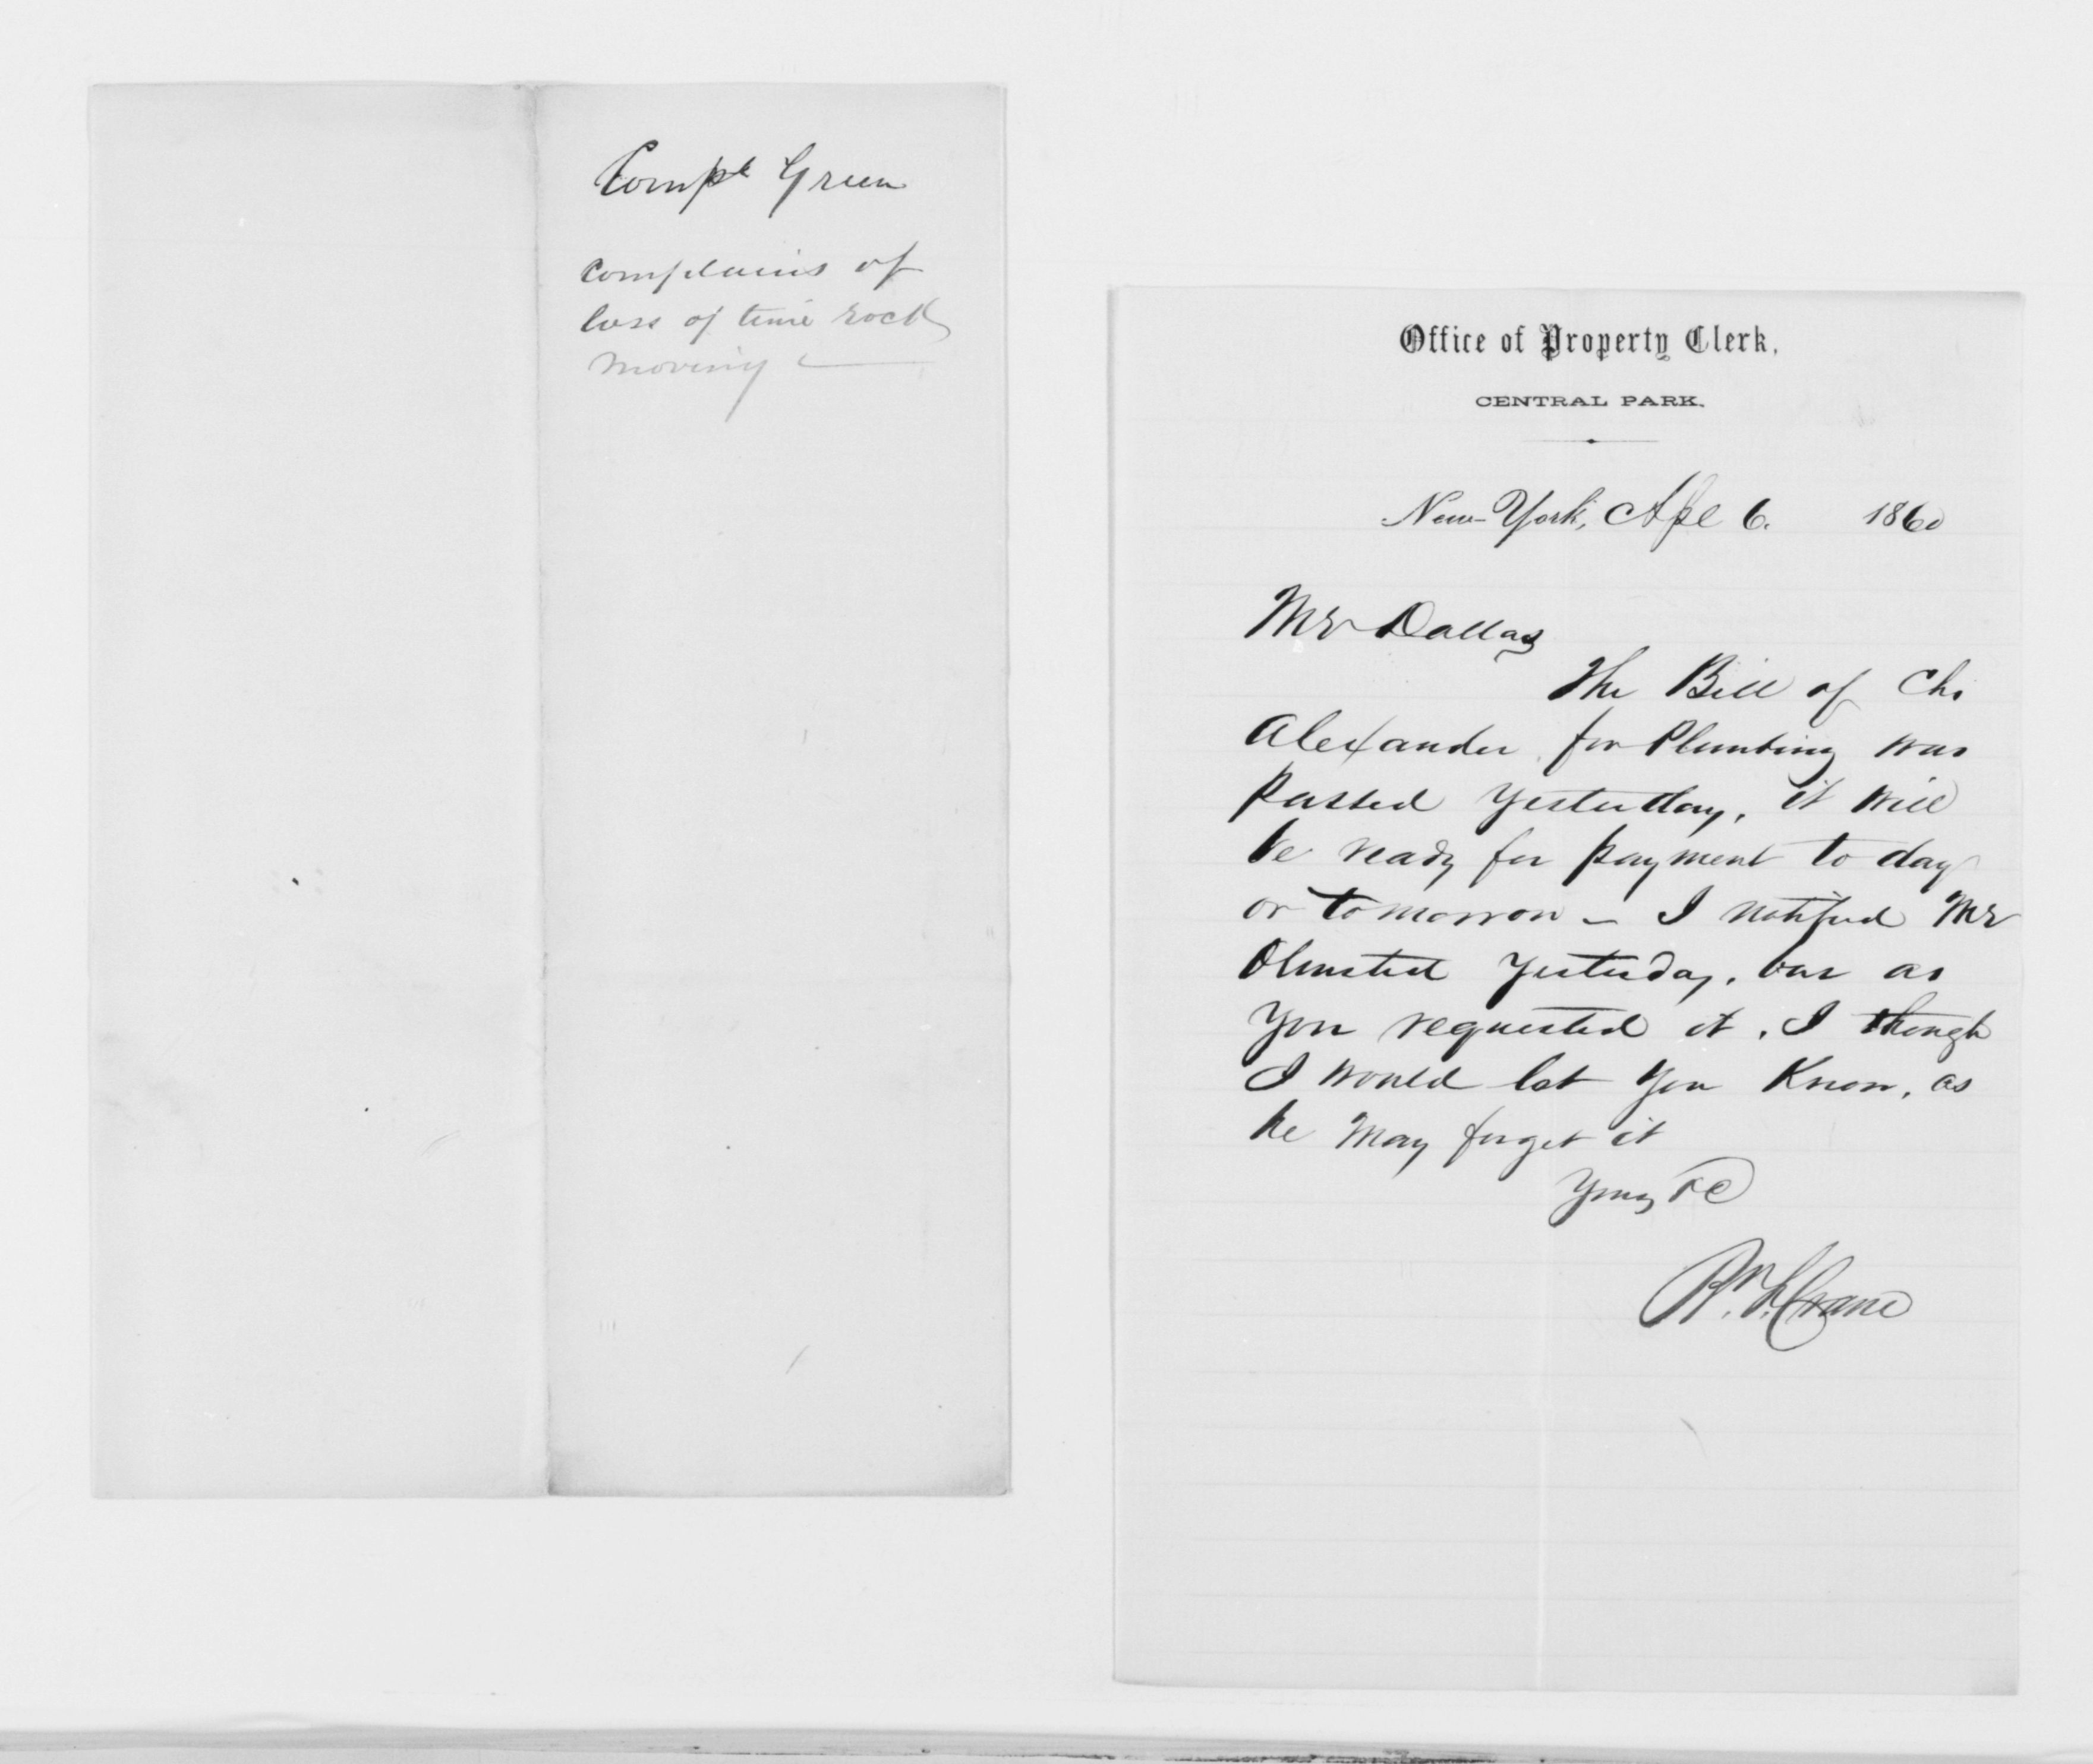 Compt Green
complains of
loss of time rock
moving
Office of Property Clerk,
CENTRAL PARK.
New-York, Apl 6. 1860
Mr Dallas
The Bill of Chs
Alexander for Plumbing was
passed yesterday, it will
be ready for payment to day
or tomorrow - I notified Mr
Olmsted yesterday. but as
you requested it, I though
I would let you Know, as
he may forget it
Yours &c
Crane